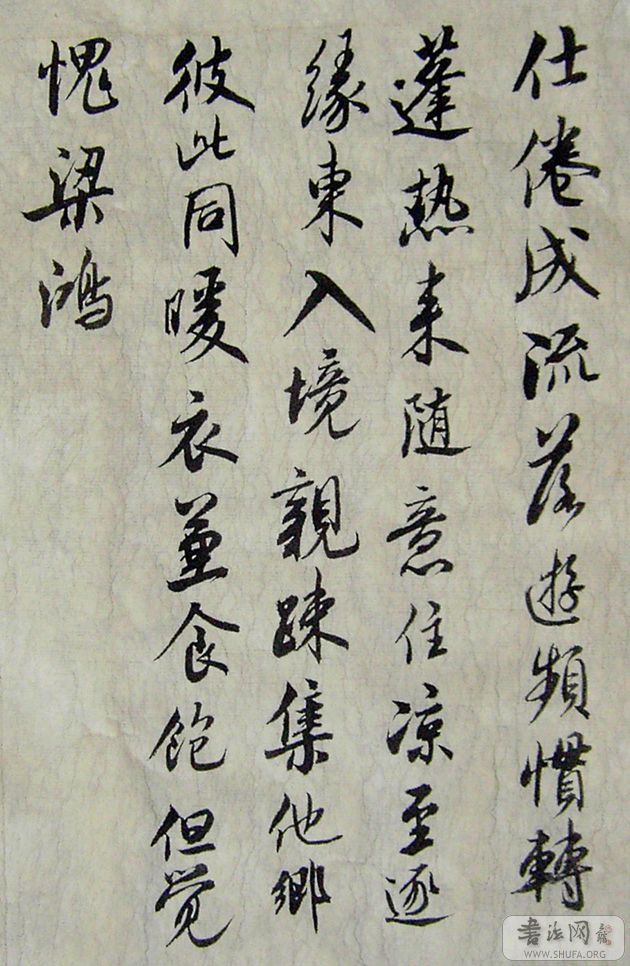 仕倦成流落遊頻慣轉
蓬熱來随意住凉至逐
緣東入境親踈集他鄉
彼此同暖衣並食飽但觉
愧梁鴻
書法网
WWW.SHUFA.ORG